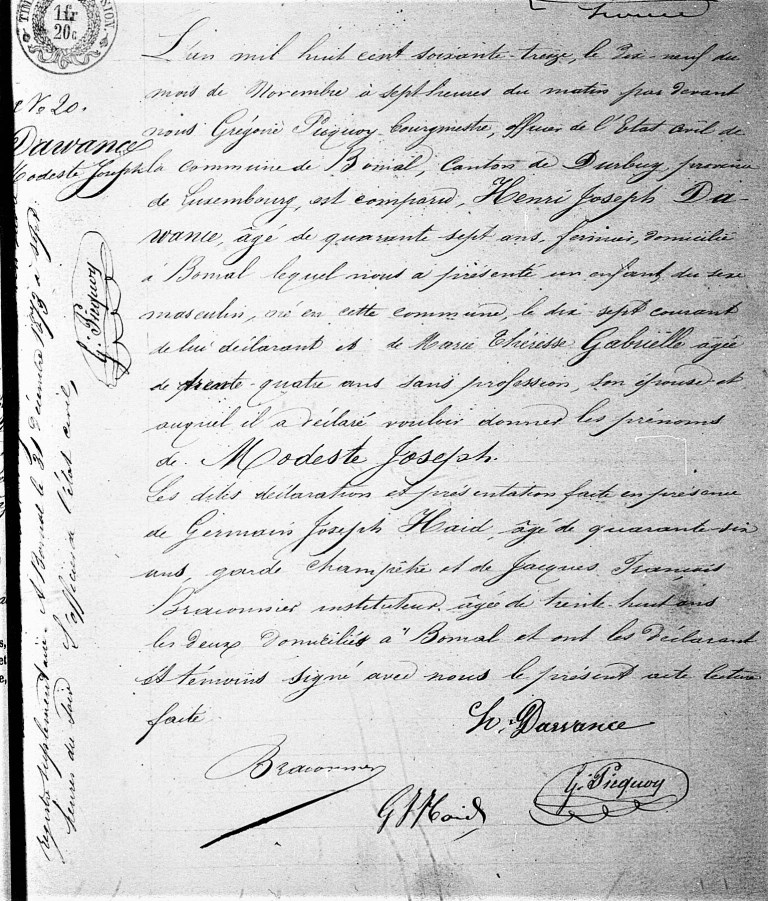 1 fr
20c
N° 20.
Dawance
Modeste Joseph
L'an mil huit cent soixante-treize, le dix-neuf du
mois de Novembre à sept heures du matin par devant
nous Grégoire Picquoy bourgmestre, officier de l'Etat civil de
la commune de Bomal, Canton de Durbuy, province
de Luxembourg, est comparu, Henri Joseph Da-
wance, âgé de quarante sept ans, fermier, domicilié
à Bomal lequel nous a présenté un enfant du sexe
masculin, né en cette commune, le dix-sept courant
de lui déclarant et de Marie Thérèse Gabrielle agée
de trente-quatre ans sans profession, son épouse et
auquel il a déclaré vouloir donner les prénoms
de Modeste Joseph.
Les dites déclaration et présentation faite en présence
de Germain Joseph Haid âgé de quarante-six
ans, garde champêtre et de Jacques François
Braconnier instituteur, âgée de trente-huit ans
les deux domiciliés à Bomal et ont les déclarant
et témoins signé avec nous le présent acte lecture
faite
h. Dawance
Braconnier
G J Haid
G. Picquoy
registre supplémentaire. A Bomal le 31 décembre 1873 à sept
heures du soir L'officier de l'état civil,
G. Picquoy